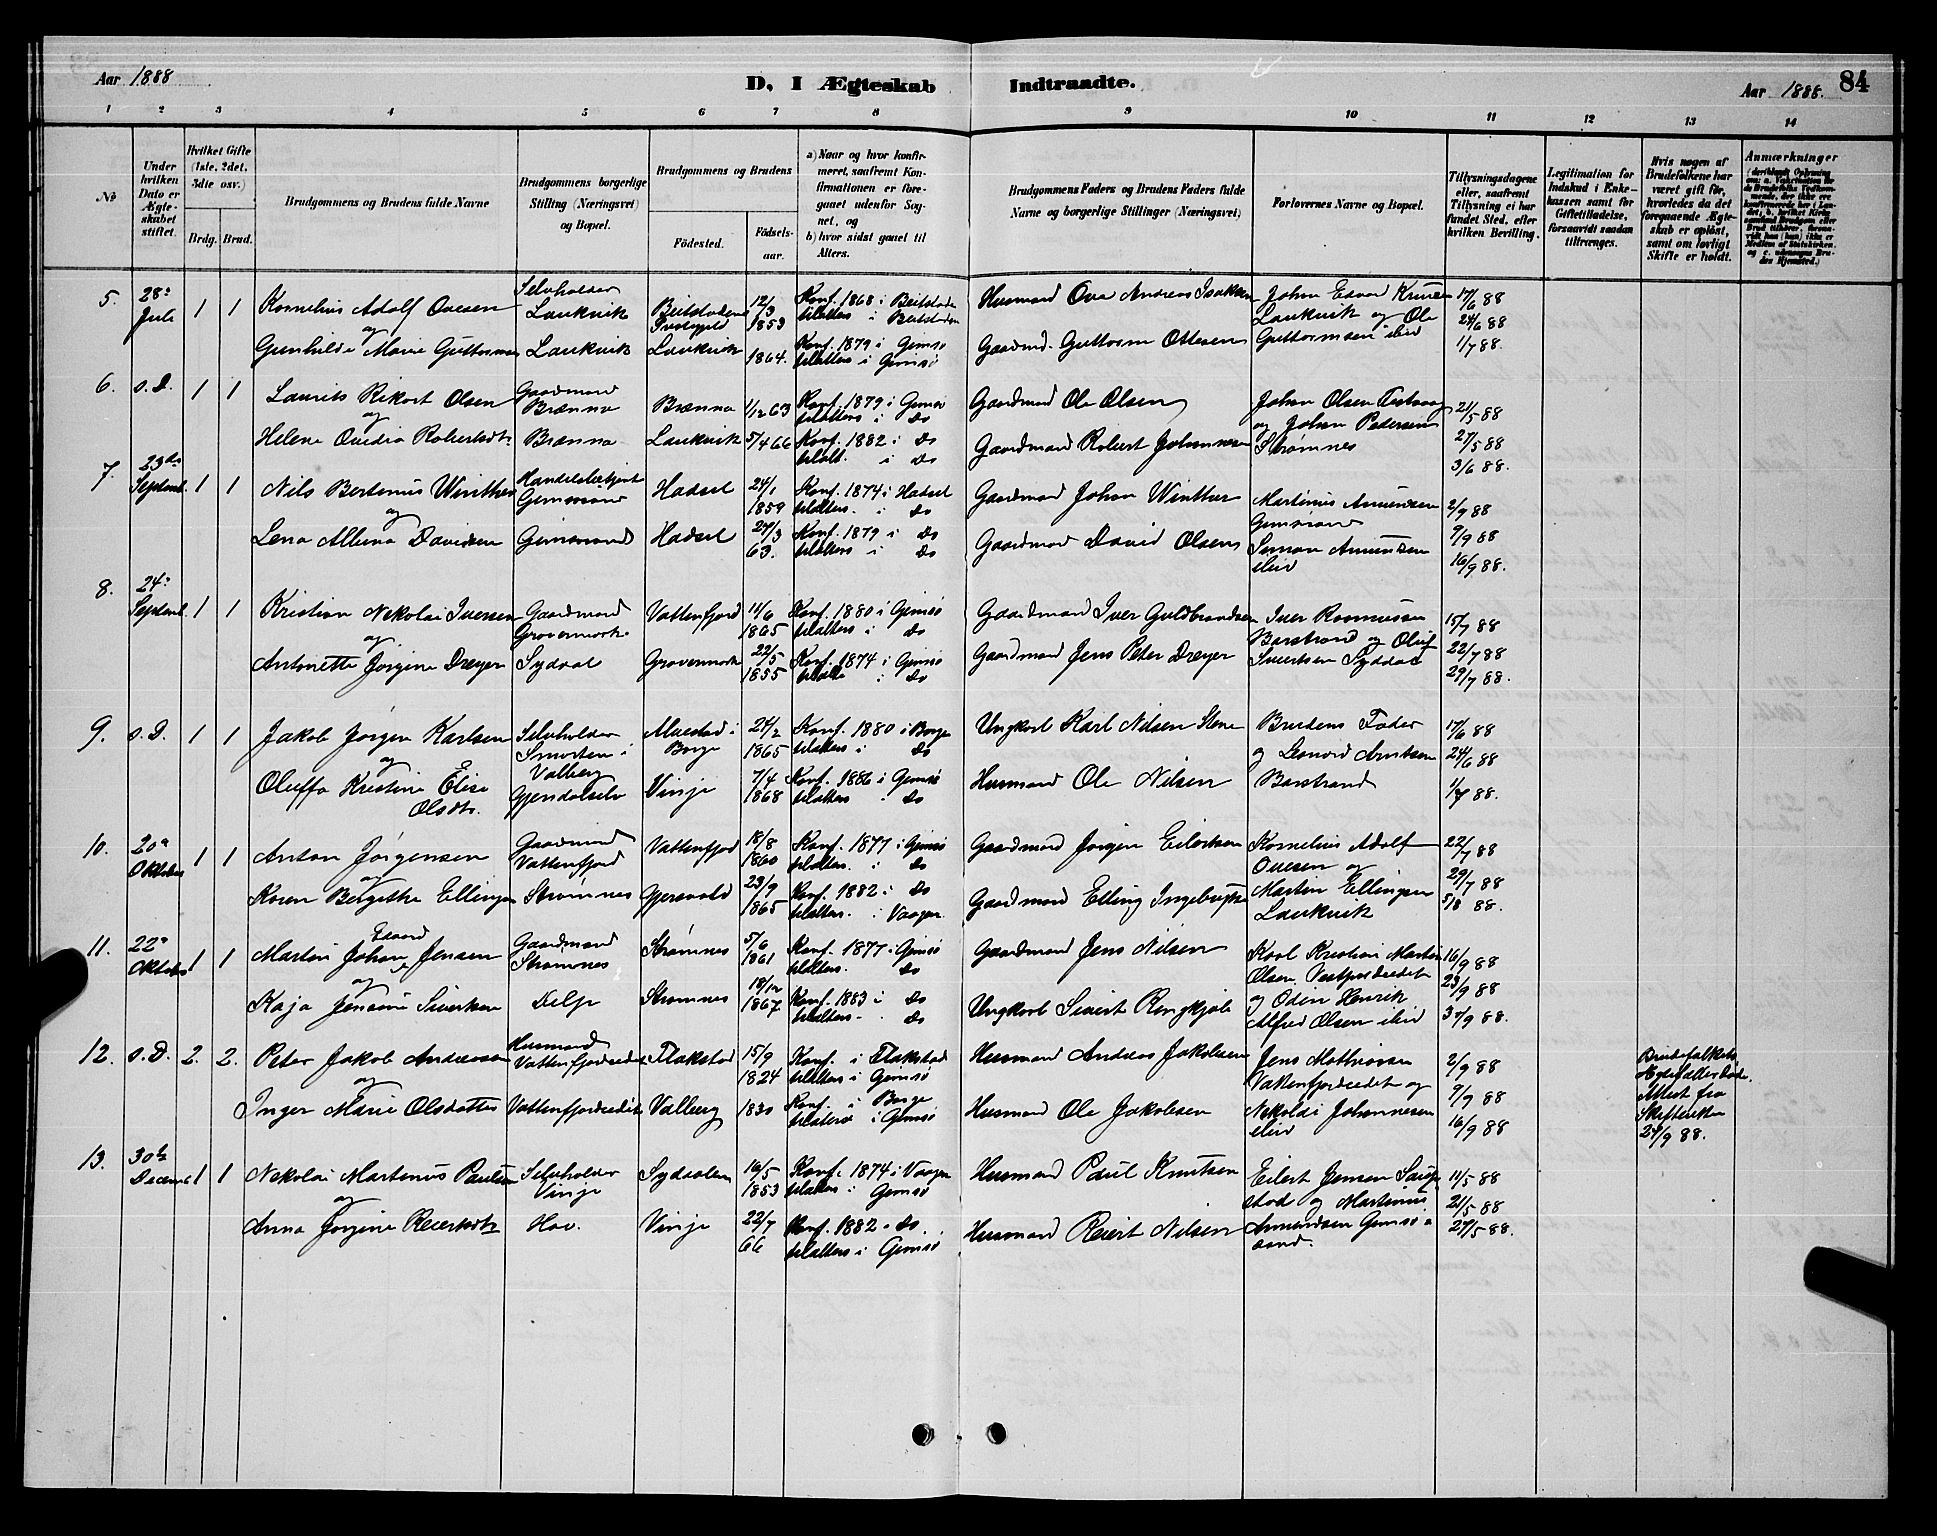 Aar 1888
D, I Ægteskab Indtraadte.
Aar 1888. 84
1 2 3 4 5 6 7 8 9 10 11 12 13 14
No
Under hvilken Dato er Ægteskabet stiftet.
Hvilket Gifte (1ste, 2det, 3die osv.)
Brdg. Brud.
Brudgommens og Brudens fulde Navne
Brudgommens borgerlige Stilling (Næringsvei) og Bopæl.
Brudgommens og Brudens
Födested.
Födselsaar.
a) Naar og hvor konfirmeret, saafremt Konfirmationen er foregaaet udenfor Sognet, og
b) hvor sidst gaaet til Alters.
Brudgommens Faders og Brudens Faders fulde Navne og borgerlige Stillinger (Næringsvei)
Forlovernes Navne og Bopæl.
Tillysningsdagene eller, saafremt Tillysning ei har fundet Sted, efter hvilken Bevilling.
Legitimation for Indskud i Enkekassen samt for Giftetilladelse, forsaavidt saadan tiltrænges.
Hvis nogen af Brudefolkene har været gift før, hvorledes da det foregaaende Ægteskab er oplöst, samt om lovligt Skifte er holdt.
Anmærkninger
5. 28de Juli 1 1 Kornelius Adolf Ovesen Selvholder Laukvik Beitstadens Prestegjeld 12/3 1853 Konf. 1868 i Beitstaden tilalters i Beitstaden Husmand Ove Andreas Isaksen Johan Edvard Knutsen Laukvik og Ole Guttormsen ibid 17/6 88 24/6 88 1/7 88.
og
Gunhilde Marie Guttormsen Laukvik Laukvik 1864. Konf. 1879 i Gimsø tilalters i Gimsø Gaardmd. Guttorm Ottesen
6. s.D. 1 1 Laurits Rikart Olsen Gaardmand Brænna Brænna 1/12 63 Konf. 1879 i Gimsø tilalters i Do Gaardmand Ole Olsen Johan Olsen
og Johan Pedersen Strømnes 21/5 88 27/5 88 3/6 88.
og
Helene Ovidia Robertsdtr Brænna Laukvik 5/4 66 Konf. 1882 i Do tilalt. i Do Gaardmand Robert Johannesen
7. 23de Septemb. 1 1 Nils Bertinus Winther Handelsbetjent Gimsøsand Hadsel 24/1 1859 Konf. 1874 i Hadsel tilalters. i Do Gaardmand Johan Winther Martinus Amundsen Gimsøsand 2/9 88 9/9 88 16/9 88.
og
Lena Albina Davidsen Gimsøsand Hadsel 27/3 63. Konf. 1879 i Do tilalters i Do Gaardmand David Olsen Simon Amundsen ibid
8. 24de Septemb. 1 1 Kristian Nikolai Iversen Gaardmand Grovermark Vattenfjord 11/6 1865 Konf. 1880 i Gimsø tilalters i Do Gaardmand Iver Guldbrandsen Iver Rasmussen Barstrand og Oluf Sivertsen Syddal 15/7 88 22/7 88 29/7 88.
og
Antonette Jørgine Dreyer Syddal Grovermark 22/5 1855 Konf. 1874 i Gimsø tilalte i Do Gaardmand Jens Peter Dreyer
9. s.D. 1 1 Jakob Jørgen Karlsen Selvholder Smorten i Valberg Alvestad i Borge 24/2 1865 Konf. 1880 i Borge tilalters i Do Ungkarl Karl Nilsen Stene Brudens Fader og Leonard Arntsen Barstrand 17/6 88 24/6 88 1/7 88.
og
Oluffa Kristine Elise Olsdtr. Gjendalselv Vinje 7/4 1868 Konf. 1886 i Gimsø tilalters i Do Husmand Ole Nilsen
10. 20de Oktober 1 1 Anton Jørgensen Gaardmand Vattenfjord Vattenfjord 18/8 1860 Konf. 1877 i Gimsø tilalters. i Do Gaardmand Jørgen Eilertsen Kornelius Adolf Ovesen og Martin Ellingsen Laukvik 22/7 88 29/7 88 5/8 88.
og
Karen Bergitha Ellingsen Strømnes Gjersvold 23/9 1865 Konf. 1882 i Do tilalters. i Vaagen Gaardmand Elling Ingebrigtsen
11. 22de Oktober 1 1 Martin Johan Edvard Jensen Gaardmand Strømnes Strømnes 5/6 1861 Konf. 1877 i Gimsø tilalters. Do Gaardmand Jens Nilsen Karl Kristian Martin Olsen Vestfjordeidet og Odin Henrik Alfred Olsen ibid 16/9 88 23/9 88 30/9 88.
og
Kaja Jensine Sivertsen Delp Strømnes 18/12 1867 Konf. 1883 i Do tilalters. Do Ungkarl Sivert Ringkjøb
12. s.D. 2. 2. Peter Jakob Andreassen Husmand Vattenfjordeidet Flakstad 15/9 1824 Konf. i Flakstad tilalters i Gimsø Husmand Andreas Jakobsen Jens Mathiassen Vattenfjordeidet og Nikolai Johannesen ibid 2/9 88 9/9 88 16/9 88 Brudefolkets Ægtefæller døde. Attest fra Skifteretten 24/9 88.
og
Inger Marie Olsdatter Vattenfjordeidet Valberg 1830 Konf. i Borge tilalters i Gimsø Husmand Ole Jakobsen
13. 30te Decemb. 1 1 Nikolai Martinus Paulsen Selvholder Vinje Syddalen 16/5 1853 Konf. 1874 i Vaagen tilalters i Gimsø Husmand Paul Knutsen Eilert Jensen Saupstad og Martinus Amundsen Gimsøsand. 11/5 88 21/5 88 27/5 88.
og
Anna Jørgine Reiertsdtr Hov. Vinje 22/7 66 Konf. 1882 i Do. tilalters i Gimsø Husmand Reiert Nilsen